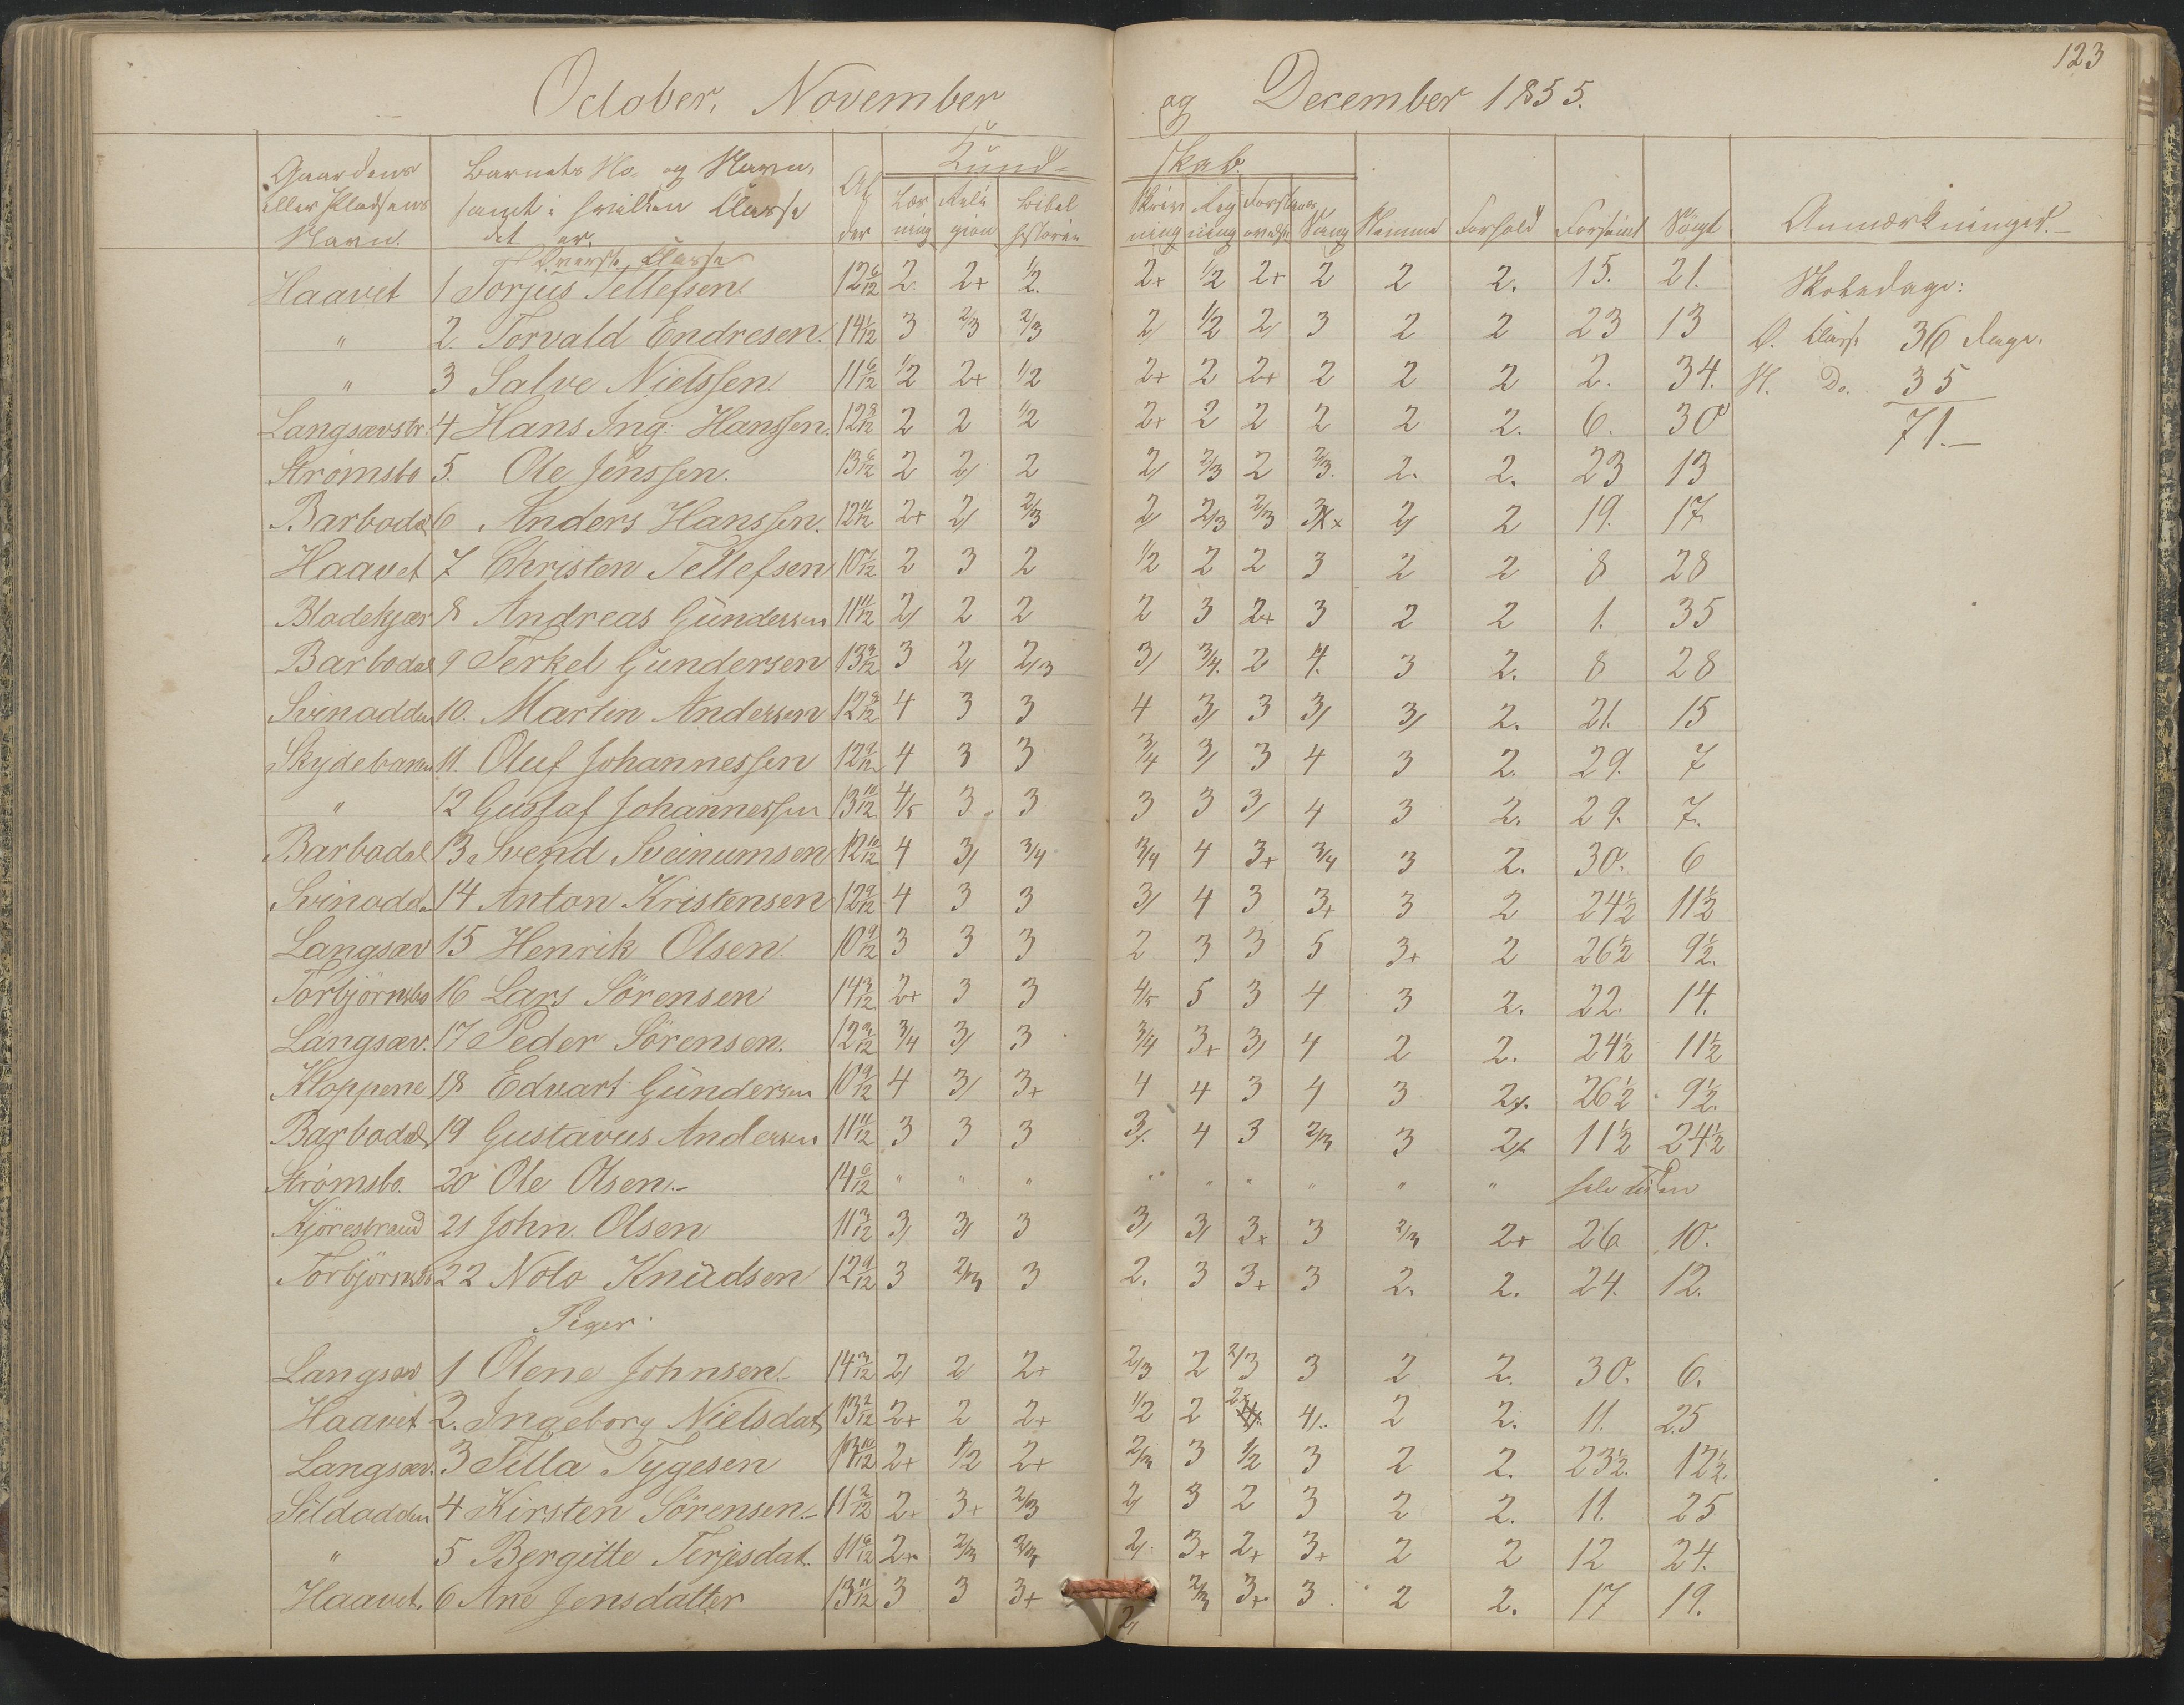 123
October, November og December 1855.
Gaardens eller Pladsens Navn. | Barnets No. og Navn, samt i hvilken Classe det er. | Alder | Kundskab. | Læsning | Religion | Bibelhistorie | Skrivning | Regning | Forstandsøvelse | Sang | Nemme | Forhold | Forsømt | Søgt | Anmærkninger.
Øverste Classe
Haavet 1 Torjus Tellefsen 12 6/12 2. 2+ 1/2. 2+ 1/2 2+ 2 2 2. 15. 21. Skoledage:
" 2. Torvald Endresen. 14 1/12 3 2/3 2/3 2/ 1/2 2/ 3 2 2 23 13 Ø. Classe 36 Dage.
" 3 Salve Nielssen 11 6/12 1/2 2+ 1/2 2+ 2 2+ 2 2 2 2. 34. N. Do. 35
Langsævstr. 4 Hans Ing. Hanssen. 12 8/12 2 2 1/2 2+ 2 2 2 2 2. 6. 30 71.—
Strømsbo 5. Ole Jenssen. 13 6/12 2 2/ 2 2/ 2/3 2 2/3. 2. 2. 23 13
Barbodal 6 Anders Hanssen. 12 11/12 2+ 2/ 2/3 2/ 2/3 2/3 2/ 2 19. 17
Haavet 7 Christen Tellefsen 10 7/12 2 3 2 1/2 2 2 3 2 2 8 28
Blodekjær 8 Andreas Gundersen 11 11/12 2/ 2 2 2 3 2+ 3 2 2 1. 35
Barbodal 9 Terkel Gundersen 13 9/12 3 2/ 2/3 3/ 3/4. 2 4. 3 2. 8 28
Svinodden 10. Martin Andersen 12 9/12 4 3 3 4 3/ 3 3/ 3/ 2. 21. 15
Skydebanen 11. Oluf Johannessen 12 9/12 4 3 3 3/4 3/ 3 4 3 2. 29. 7
" 12 Gustaf Johannessen 13 10/12 4/5 3 3 3 3 3/ 4 3 2. 29. 7.
Barbodal 13 Svend Sveinumsen 12 10/12 4 3/ 3/4 3/4 4 3+ 3/4 3 2. 30. 6
Svinodd. 14 Anton Kristensen 12 9/12 4 3 3 3/ 4 3 3+ 3 2 24 1/2 11 1/2
Langsæv 15 Henrik Olsen. 10 9/12 3 3 3 2 3 3 5 3+ 2 26 1/2 9 1/2.
Torbjörnsbo 16 Lars Sörensen 14 3/12 2+ 3 3 4/5 5 3 4 3 2. 22. 14.
Langsæv. 17 Peder Sörensen. 12 3/12 3/4 3/ 3 3/4 3+ 3/ 4 2 2. 24 1/2 11 1/2
Kloppene 18 Edvart Gundersen 10 9/12 4 3/ 3+ 4 4 3 4 3 26 1/2 9 1/2.
Barbodal 19 Gustavus Andersen 11 11/12 3 3 3 3/. 4 3 2/3 3 11 1/2 24 1/2
Strømsbo. 20 Ole Olsen.- 14 6/12 " " " " " " " " " hele Tiden
Kjörestrand 21 John. Olsen 11 3/12 3/ 3/ 3 3/ 3/ 3+ 3 2/3 2+ 26 10.
Torbjörnsbo 22 Nolo Knudsen 12 9/12 3 2/3 3 2. 3 3+ 3 2. 2. 24. 12.
Piger.
Langsæv 1 Olene Johnsen.- 14 3/12 2/ 2 2+ 2/3 2 2/3 3 2 2. 30. 6.
Haavet 2. Ingeborg Nielsdat 13 2/12 2+ 2 2+ 1/2 2 2+ 4/. 2 2. 11. 25
Langsæv. 3 Tilla Tygesen 10/12 2+ 1/2 2+ 2/3 3 1/2 3 2 2. 23 1/2. 12 1/2
Sildodden 4 Kirsten Sörensen.- 11 2/12 2+ 3+ 2/3 2/ 3 2 3 2 2. 11. 25
" 5 Bergitte Terjesdat. 11 6/12 2+ 2/3 2/3 2/. 3+ 2+ 3+ 2 2 12 24.
Haavet. 6 Ane Jensdatter 13 11/12 3 3 3+ 2/ 2/3 3+ 3. 2 2. 17 19.